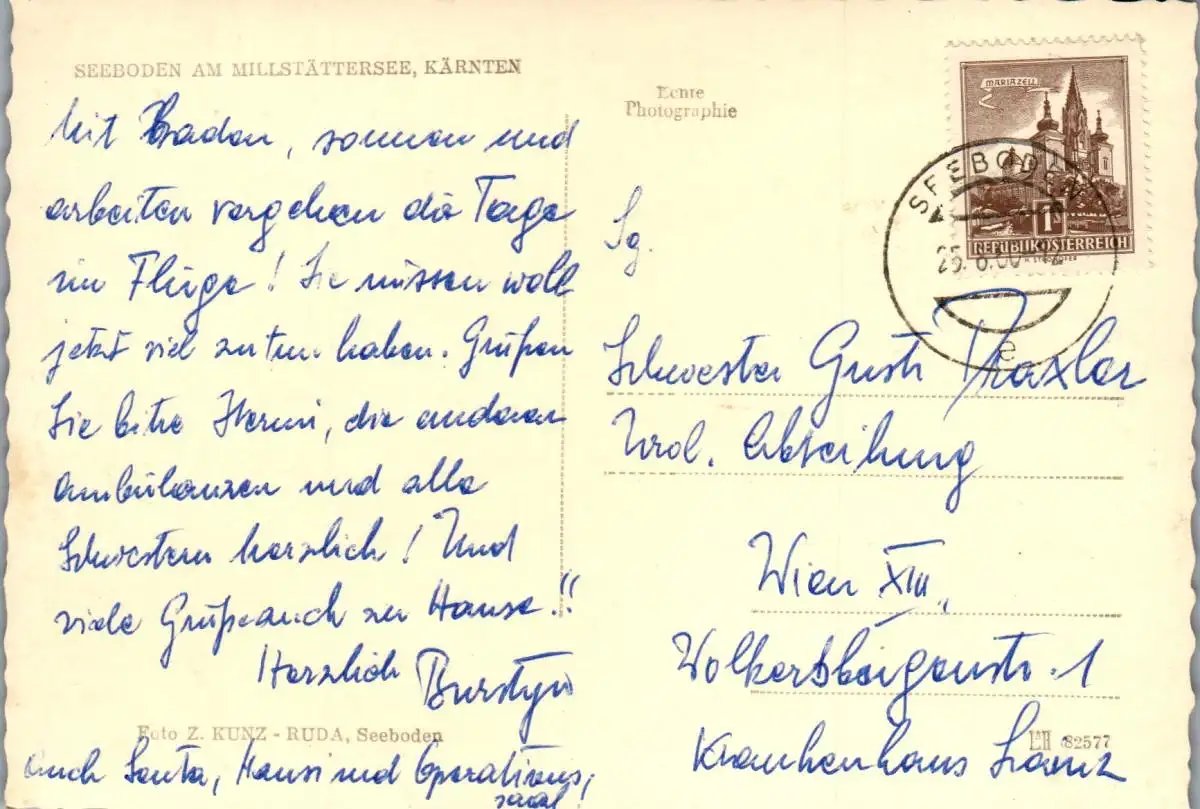 SEEBODEN AM MILLSTÄTTERSEE, KÄRNTEN
Mit Baden, sonnen und
arbeiten vergehen die Tage
im Fluge! Sie müssen wohl
jetzt viel zu tun haben. Grüßen
Sie bitte Hermi, die anderen
Ambulanzen und alle
Schwestern herzlich! Und
viele Grüße auch zu Hause!!
Herzlich Burstyn
Foto Z. KUNZ - RUDA, Seeboden
auch Santa, Hansi und Operations,
saal!
Echte
Photographie
MARIAZELL
1
REPUBLIK ÖSTERREICH
SEEBODEN
25. 8. 60
e
Sg.
Schwester Gusti Draxler
Urol. Abteilung
Wien XIII,
Wolkersbergenstr. 1
Krankenhaus Lainz
82577